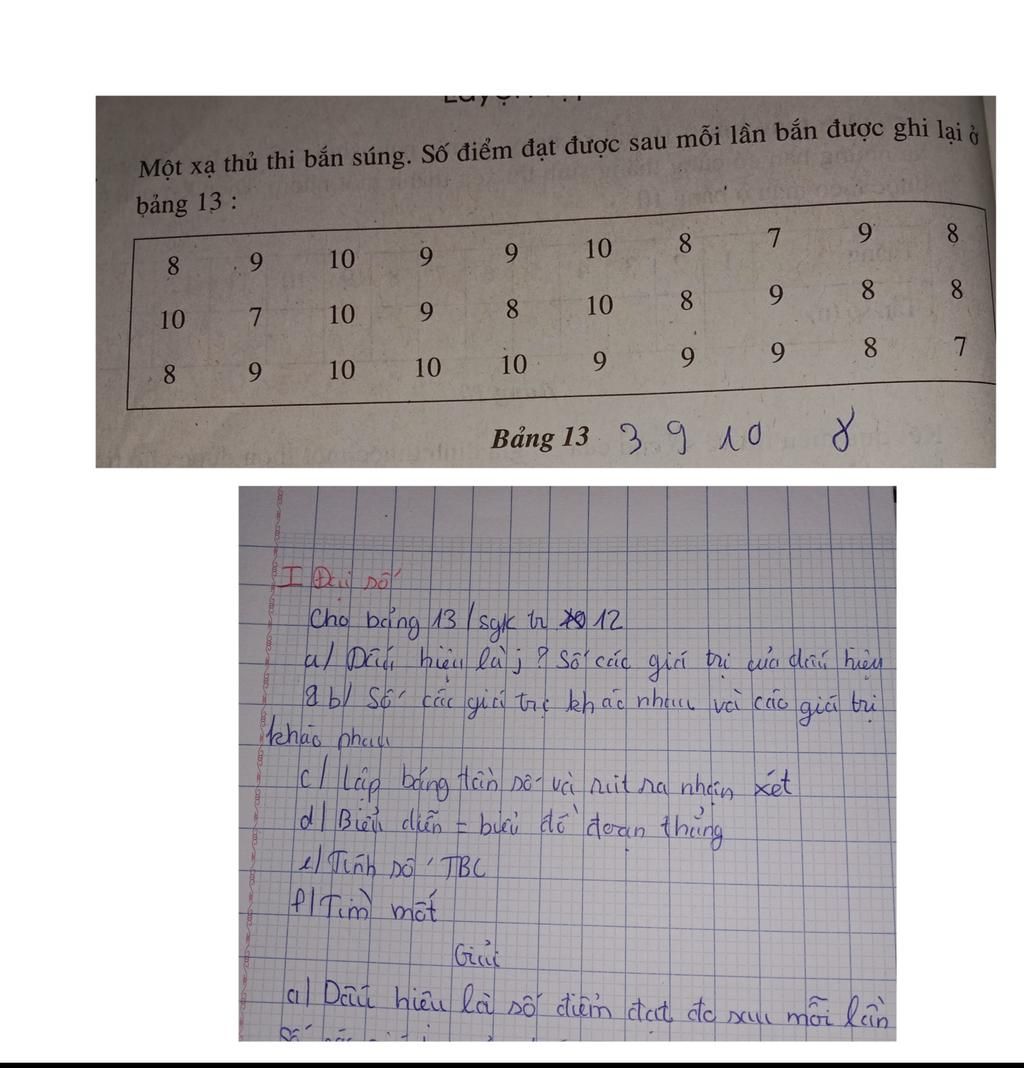 Một xạ thủ thi bắn súng. Số điểm đạt được sau mỗi lần bắn được ghi lại ở
bảng 13 :
8 9 10 9 9 10 8 7 9 8
10 7 10 9 8 10 8 9 8 8
8 9 10 10 10 9 9 9 8 7
Bảng 13 3 9 10 8
I Đại số
Cho bảng 13 / sgk tr 12
a/ Dấu hiệu là j ? Số các giá trị của dấu hiệu
b/ Số các giá trị khác nhau và các giá trị
khác nhau
c/ Lập bảng tần số và rút ra nhận xét
d/ Biểu diễn = biểu đồ đoạn thẳng
e/ Tính số TBC
f/ Tìm mốt
Giải
a/ Dấu hiệu là số điểm đạt đc sau mỗi lần